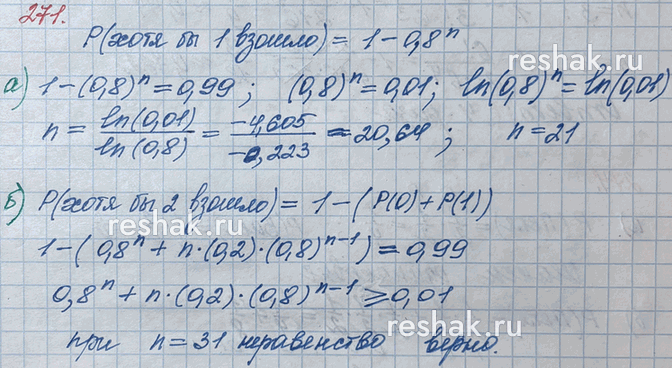 271.
P(хотя бы 1 взошло) = 1 - 0,8ⁿ
а) 1 - (0,8)ⁿ = 0,99 ; (0,8)ⁿ = 0,01; ln(0,8)ⁿ = ln(0,01)
n = ln(0,01) / ln(0,8) = -4,605 / -0,223 = 20,64 ; n = 21
б) P(хотя бы 2 взошло) = 1 - (P(0) + P(1))
1 - (0,8ⁿ + n·(0,2)·(0,8)ⁿ⁻¹) = 0,99
0,8ⁿ + n·(0,2)·(0,8)ⁿ⁻¹ ⩾ 0,01
при n = 31 неравенство верно.
reshak.ru
reshak.ru
reshak.ru
reshak.ru